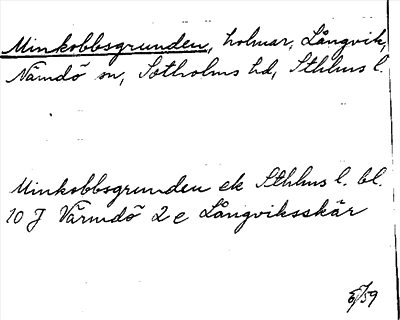 Minkobbsgrunden, holmar, Långvik,
Nämdö sn, Sotholms hd, Sthlms l.
Minkobbsgrunden ek Sthlms l. bl.
10 J Värmdö 2 e Långviksskär
/59